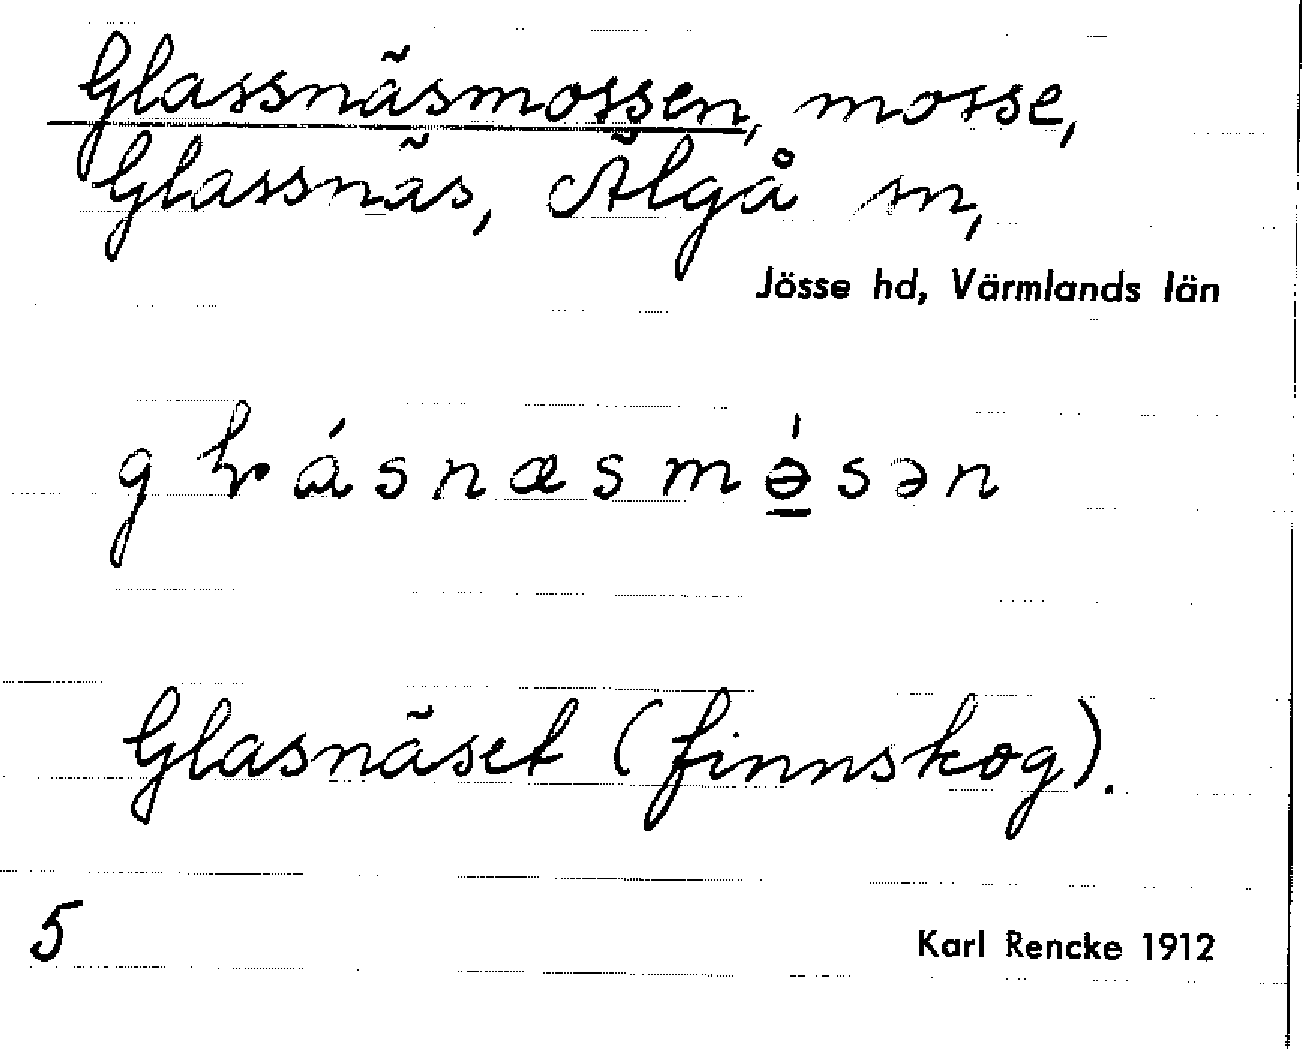 Glassnäsmossen, mosse,
Glassnäs, Älgå sn,
Jösse hd, Värmlands län
Glasnäset (finnskog).
5
Karl Rencke 1912